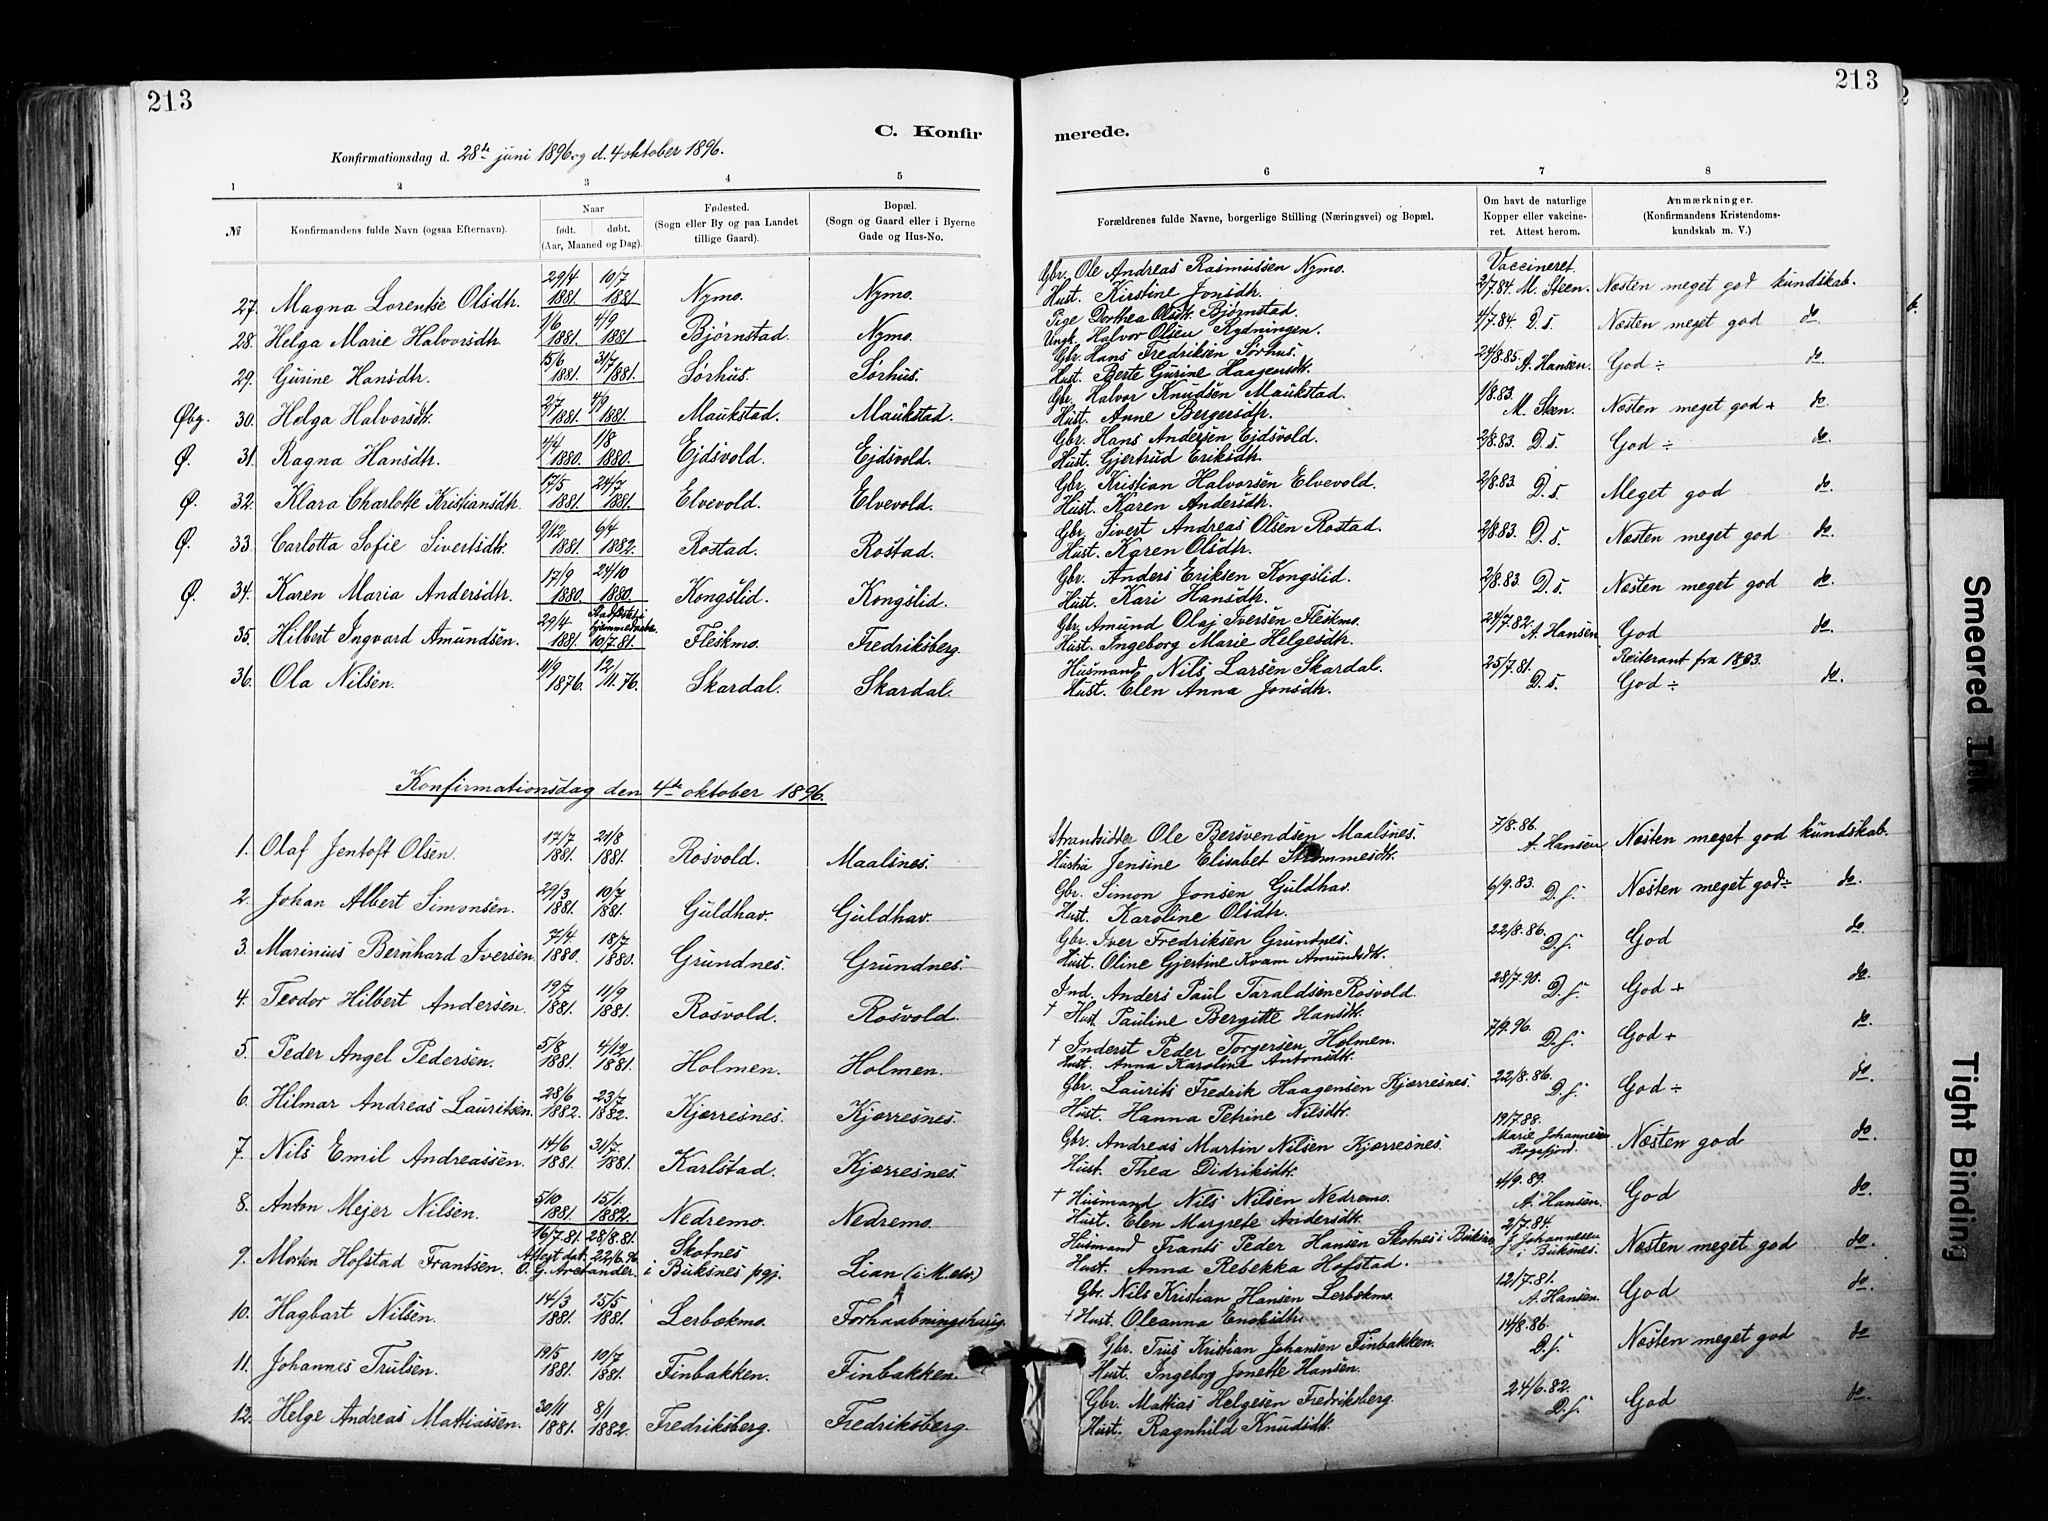 213
213
C. Konfir
merede.
Konfirmationsdag d. 28de juni 1896 og d. 4 oktober 1896.
1 2 3 4 5 6 7 8
№ Konfirmandens fulde Navn (ogsaa Efternavn). Naar født. døbt. (Aar, Maaned og Dag). Fødested. (Sogn eller By og paa Landet tillige Gaard). Bopæl. (Sogn og Gaard eller i Byerne Gade og Hus-No. Forældrenes fulde Navne, borgerlige Stilling (Næringsvei) og Bopæl. Om havt de naturlige Kopper eller vakcineret. Attest herom. Anmærkninger. (Konfirmandens Kristendomskundskab m. V.)
27. Magna Lorentse Olsdtr. 29/4 1881. 10/7 1881. Nymo. Nymo. Gbr. Ole Andreas Rasmussen Nymo. Vaccineret.
Hust. Kirstine Jonsdtr. 2/7.84. M. Steen. Næsten meget god kundskab.
28. Helga Marie Halvorsdtr. 1/6 1881. 4/9 1881 Bjørnstad. Nymo. Pige Dorthea Olsdtr. Bjørnstad. 4/7.84. D.s. Næsten meget god do
Ungk. Halvor Olsen Rydningen.
29. Gurine Hansdtr. 15/6 1881. 31/7 1881. Sørhus. Sørhus. Gbr. Hans Fredriksen Sørhus. 24/8.85. A. Hansen. God ÷ do
Hust. Berte Gurine Haagensdtr.
Øbg. 30. Helga Halvorsdtr. 2/7 1881. 4/9 1881. Maukstad. Maukstad. Gbr. Halvor Knudsen Maukstad. 1/8.83. M. Steen. Næsten meget god + do
Hust. Anne Bergersdtr.
Ø. 31. Ragna Hansdtr. 4/4 1880. 1/8 1880. Ejdsvold. Ejdsvold. Gbr. Hans Andersen Ejdsvold. 2/8.83. D.s. God ÷ do.
Hust. Gjertrud Eriksdtr.
Ø. 32. Klara Charlotte Kristiansdtr. 17/5 1881. 24/7 1881. Elvevold. Elvevold. Gbr. Kristian Halvorsen Elvevold. 2/8.83. D.s. Meget god do.
Hust. Karen Andersdtr.
Ø. 33. Carlotta Sofie Sivertsdtr. 9/12 1881. 6/4 1882. Rostad. Rostad. Gbr. Sivert Andreas Olsen Rostad. 2/8.83. D.s. Næsten meget god do.
Hust. Karen Olsdtr.
Ø. 34. Karen Maria Andersdtr. 17/9 1880. 24/10 1880. Kongslid. Kongslid. Gbr. Anders Eriksen Kongslid. 2/8.83. D.s. Næsten meget god do.
Hust. Kari Hansdtr.
35. Hilbert Ingvard Amundsen. 29/4 1881 10/7.81. Fleskmo. Fredriksberg. Gbr. Amund Olaj Iversen Fleskmo. 24/7.82. A. Hansen God do.
Hust. Ingeborg Marie Helgesdtr.
36. Ola Nilsen. 11/9 1876. 12/11.76. Skardal. Skardal. Husmand Nils Larsen Skardal. 25/7.81. D.s. Reiterant fra 1893.
Hust. Elen Anna Jonsdtr. God ÷ do.
Konfirmationsdag den 4de oktober 1896.
1. Olaf Jentoft Olsen. 17/7 1881. 21/8 1881. Rosvold. Maalsnes. Strandsidder Ole Bersvendsen Maalsnes. 7/8.86. A. Hansen. Næsten meget god kundskab.
Hustru Jensine Elisabet Strømmesdtr.
2. Johan Albert Simonsen. 29/3 1881. 10/7 1881. Guldhav. Guldhav. Gbr. Simon Jonsen Guldhav. 6/9.83. D.s. Næsten meget god ÷ do.
Hust. Karoline Olsdtr.
3. Marinius Bernhard Iversen. 7/4 1880. 18/7 1880. Grundnes. Grundnes. Gbr. Iver Fredriksen Grundnes. 22/8.86. D.s. God do.
Hust. Oline Gjertine Kvam Amundsdtr.
4. Teodor Hilbert Andersen. 19/7 1881. 11/9 1881. Rosvold. Rosvold. Ind. Anders Paul Taraldsen Rosvold. 28/7.90. D.s. God + do.
† Hust. Pauline Bergitte Hansdtr.
5. Peder Angel Pedersen. 5/8 1881. 4/12 1881. Holmen. Holmen. † Inderst Peder Torgersen Holmen. 7/9.96. D.s. God + do.
Hust. Anna Karoline Antonsdtr.
6. Hilmar Andreas Lauritsen. 28/6 1882. 23/7 1882. Kjærresnes. Kjærresnes. Gbr. Laurits Fredrik Haagensen Kjærresnes. 22/8.86. D.s. God ÷ do.
Hust. Hanna Petrine Nilsdtr.
7. Nils Emil Andreassen. 14/6 1881. 31/7 1881. Karlstad. Kjærresnes. Gbr. Andreas Martin Nilsen Kjærresnes. 19/7.88. Marie Johannesen Næsten god do.
Hust. Thea Didriksdtr.
8. Anton Mejer Nilsen. 5/10 1881. 15/1 1882. Nedremo. Nedremo. † Husmand Nils Nilsen Nedremo. 4/9.89. A. Hansen. God do.
Hust. Elen Margrete Andersdtr.
9. Morten Hofstad Frantsen. 16/7.81. 28/8.81. Attest dat. 22/6.96 O. G. Arctander. Skotnes i Buksnes pgj. Lian (i M.elv.) Husmand Frants Peder Hansen Skotnes i Buksnes 2/7.84. J. Johannesen i Buksnes. Næsten meget god do.
Hust. Anna Rebekka Hofstad.
10. Hagbart Nilsen. 14/3 1881. 15/5 1881. Lerbækmo. Forhaabningshaug. Gbr. Nils Kristian Hansen Lerbækmo. 12/7.81. A. Hansen. God do.
† Hust. Oleanna Enoksdtr.
11. Johannes Trulsen. 19/5 1881. 10/7 1881. Finbakken. Finbakken. Gbr. Truls Kristian Johansen Finbakken. 14/8.86. D.s. Næsten meget god do
Hust. Ingeborg Jonette Hansen.
12. Helge Andreas Mattiassen. 30/11 1881. 8/1 1882. Fredriksberg. Fredriksberg. Gbr. Mattias Helgesen Fredriksberg. 24/6.82. D.s. God do.
Hust. Ragnhild Knudsdtr.
Smeared Ink
Tight Binding